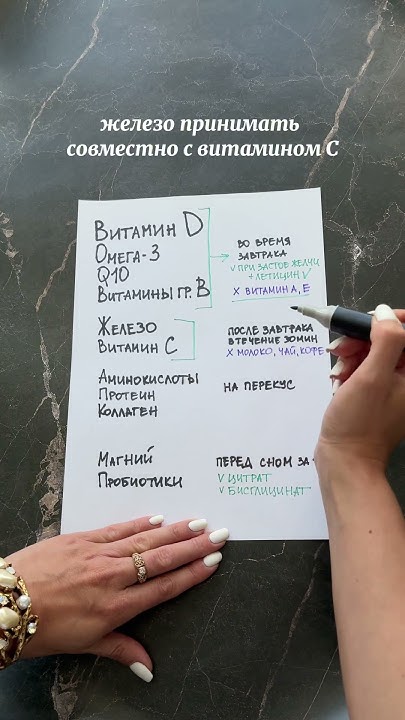 железо принимать
совместно с витамином С
Витамин D
Омега-3
Q10
Витамины гр. B
во время
завтрака
√ при застое желчи
+ летицин √
х витамин А, Е
Железо
Витамин С
после завтрака
в течение 30мин
х молоко, чай, кофе
Аминокислоты
Протеин
Коллаген
на перекус
Магний
Пробиотики
перед сном за
√ цитрат
√ бисглицинат